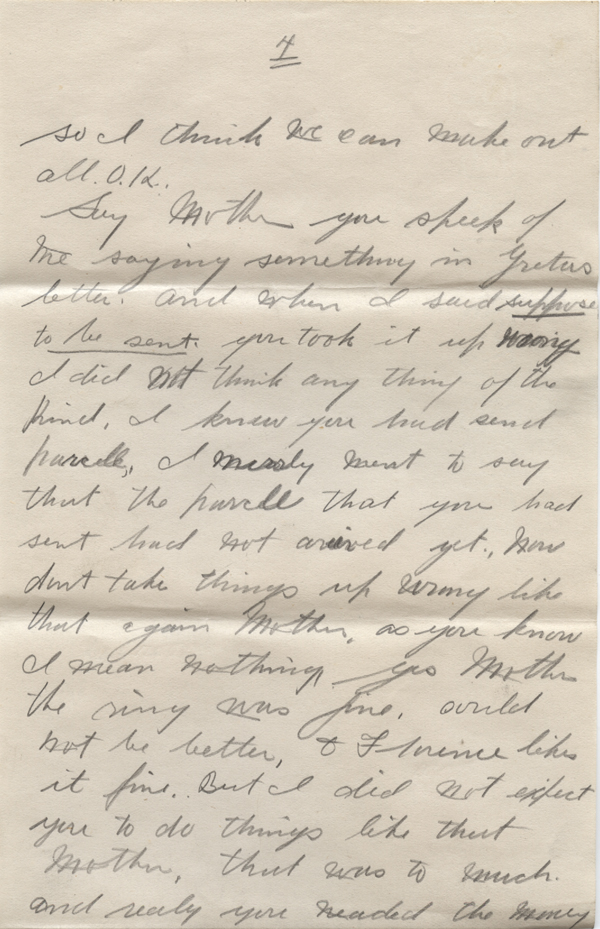 4
so I think we can make out
all. O.K.
Say Mother you speek of
me saying something in Gretas
letter. and when I said suppose
to be sent. you took it up wrong
I did not think any thing of the
kind, I knew you had send
parcell, I merely ment to say
that the parcell that you had
sent had not arrived yet., now
dont take things up wrong like
that again Mother, as you know
I mean nothing, yes Mother
the ring was fine. could
not be better, & Florence likes
it fine. But I did not expect
you to do things like that
Mother, that was to much.
and realy you needed the money